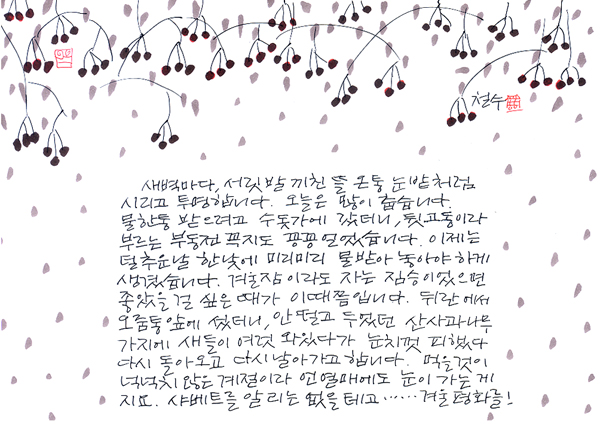 철수
새벽마다, 서릿발 끼친 뜰 온통 눈밭처럼
시리고 투명합니다. 오늘은 많이 춥습니다.
물한통 받으려고 수돗가에 갔더니, 뒷고동이라
부르는 부동전 꼭지도 꽁꽁 얼었습니다. 이제는
덜추운날 한낮에 미리미리 물받아 놓아야 하게
생겼습니다. 겨울잠이라도 자는 짐승이었으면
좋았을걸 싶은 때가 이때쯤입니다. 뒤란에서
오줌통앞에 섰더니, 안 떨고 두었던 산사과나무
가지에 새들이 여럿 와있다가 눈치껏 피했다
다시 돌아오고 다시 날아가고 합니다. 먹을것이
넉넉치 않은 계절이라 언 열매에도 눈이 가는게
지요. 샤베트를 알 리는 없을 테고……겨울 평화를!